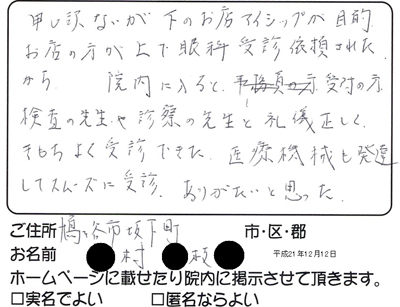 申し訳ないが 下のお店アイシップが目的
お店の方が上で眼科受診依頼された
から 院内に入ると 受付の方
検査の先生や診察の先生と礼儀正しく
きもちよく受診できた。医療機械も発達
してスムーズに受診。ありがたいと思った。
ご住所 鳩ヶ谷市坂下町 市・区・郡
お名前 村 枝 平成21年12月12日
ホームページに載せたり院内に掲示させて頂きます。
□実名でよい □匿名ならよい